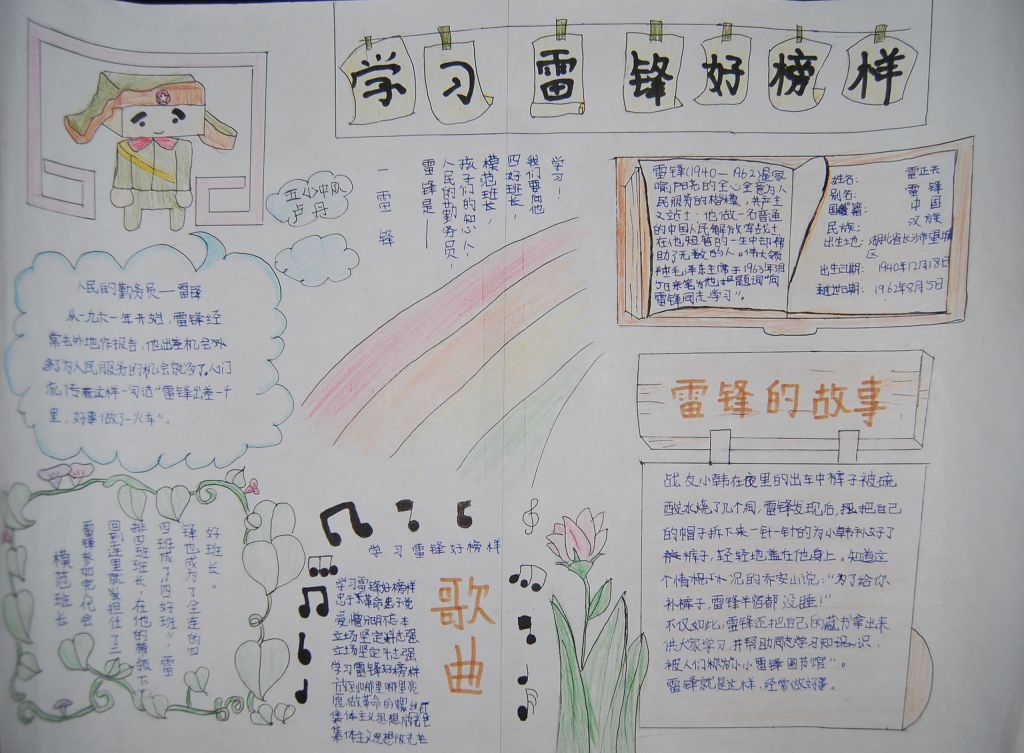 学习雷锋好榜样
五小冲队
卢丹
学习！
我们要向他
四好班长，
模范班长，
孩子们的知心人，
人民的勤务员，
雷锋是——
一雷锋
雷锋(1940—1962)是家
喻户晓的全心全意为人
民服务的楷模，共产主
义战士，他做一名普通
的中国人民解放军战士
在他短暂的一生中却帮
助了无数的人。伟大领
袖毛泽东主席于1963年3月
5日亲笔为他题词"向
雷锋同志学习"。
姓名：雷正夫
别名：雷锋
国籍：中国
民族：汉族
出生地：湖北省长沙市望城
区
出生日期：1940年12月18日
逝世日期：1962年8月5日
人民的勤务员—雷锋
从一九六一年开始，雷锋经
常去外地作报告，他出差机会多
了为人民服务的机会就多了，人们
流传着这样一句话"雷锋出差一千
里，好事做了一火车"。
雷锋的故事
战友小韩在夜里的出车中裤子被硫
酸水烧了几个洞，雷锋发现后，把自己
的帽子拆下来一针一针的为小韩补好了
裤子，轻轻地盖在他身上。知道这
个情况的乔安山说："为了给你
补裤子，雷锋半宿都没睡！"
不仅如此，雷锋还把自己的藏书拿出来
供大家学习，并帮助同志学习知识，
被人们称为"小小雷锋图书馆"。
雷锋就是这样，经常做好事。
好班长。
锋也成为了全连的四
四班成了"四好班"，雷
排四班班长，在他的带领下
回到连里就发担任了二
雷锋参加完化会
模范班长
学习雷锋好榜样
歌曲
学习雷锋好榜样
忠于革命忠于党
爱憎分明不忘本
立场坚定斗志强
立场坚定斗志强
学习雷锋好榜样
放到哪里哪里亮
愿做革命的螺丝钉
集体主义思想放光芒
集体主义思想放光芒